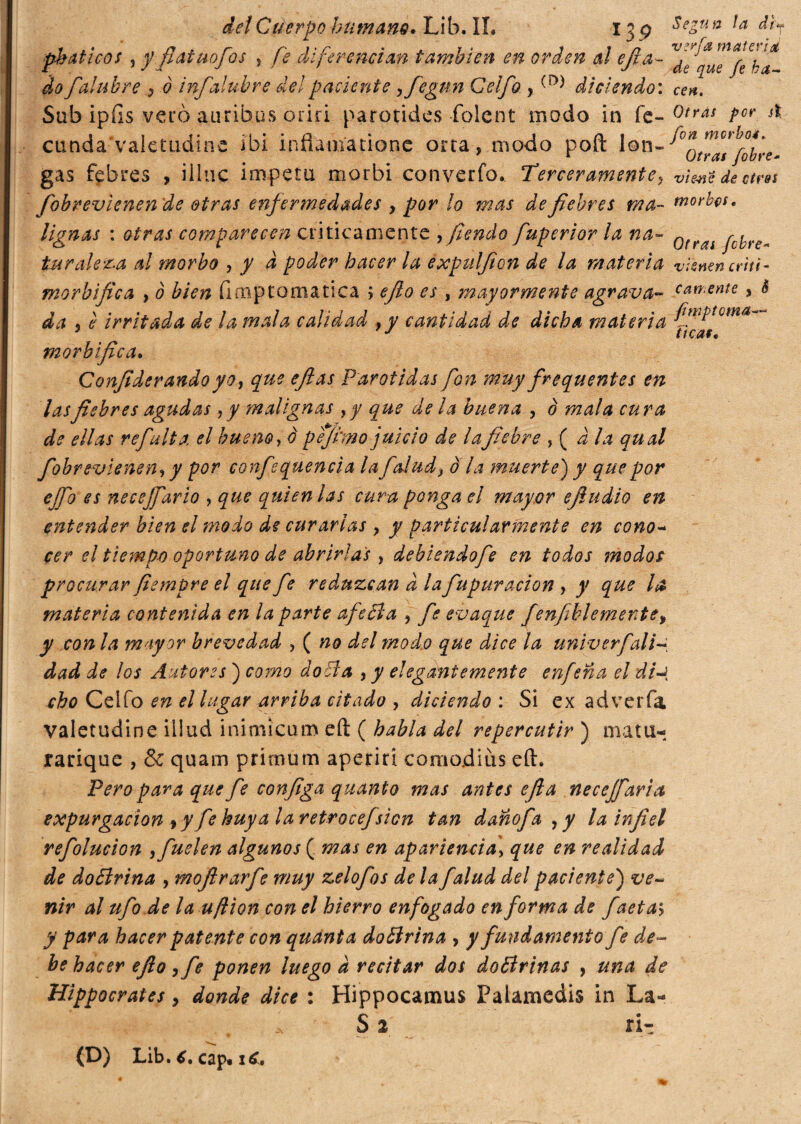 del Cuerpo humano. Lib. II. 139
phaticos , y flatuosos , se diferencian tambien en orden al esta-
do salubre , ò insalubre del paciente , segun Celso , (D) diciendo:
Sub ipsis verò auribus oriri parotides solent modo in se-
cunda valetudine ibi inflamatione orta, modo post lon-
gas febres , illuc impetu morbi converso. Terceramente,
sobrevienen de otras enfermedades , por lo mas de fiebres ma-
lignas : otras comparecen criticamente , siendo superior la na-
turaleza al morbo , y à poder hacer la expulsion de la materia
morbifica , ò bien simptomatica ; esto es , mayormente agrava-
da , è irritada de la mala calidad , y cantidad de dicha materia
morbifica.
Considerando yo, que estas Parotidas son muy frequentes en
las fiebres agudas , y malignas , y que de la buena , ò mala cura
de ellas resulta el bueno, ò pèsimo juicio de la fiebre , ( à la qual
sobrevienen, y por consequencia la salud, ò la muerte) y que por
esso es necessario , que quien las cura ponga el mayor estudio en
entender bien el modo de curarlas , y particularmente en cono-
cer el tiempo oportuno de abrirlas , debiendose en todos modos
procurar siempre el que se reduzcan à la supuracion , y que la
materia contenida en la parte afecta , se evaque sensiblemente,
y con la mayor brevedad , ( no del modo que dice la universali-
dad de los Autores ) como docta , y elegantemente enseña el di-
cho Celso en el lugar arriba citado , diciendo : Si ex adversa
valetudine illud inimicum est ( habla del repercutir ) matu-
rarique , & quam primum aperiri comodiùs est.
Pero para que se consiga quanto mas antes esta necessaria
expurgacion , y se huya la retrocession tan dañosa , y la infiel
resolucion , suelen algunos ( mas en apariencia, que en realidad
de doctrina , mostrarse muy zelosos de la salud del paciente) ve-
nir al uso de la ustion con el hierro ensogado en forma de saeta;
y para hacer patente con quánta doctrina , y fundamento se de-
be hacer esto , se ponen luego à recitar dos doctrinas , una de
Hippocrates , donde dice : Hippocamus Palamedis in La-
S 2 ri-
(D) Lib. 6. cap. 16.
Segun la di-
versa materia
de que se ha-
cen.
Otras por sì
son morbos.
Otras sobre-
vienē de otros
morbos.
Otras sobre-
vienen criti-
camente , è
simptoma-
ticas.